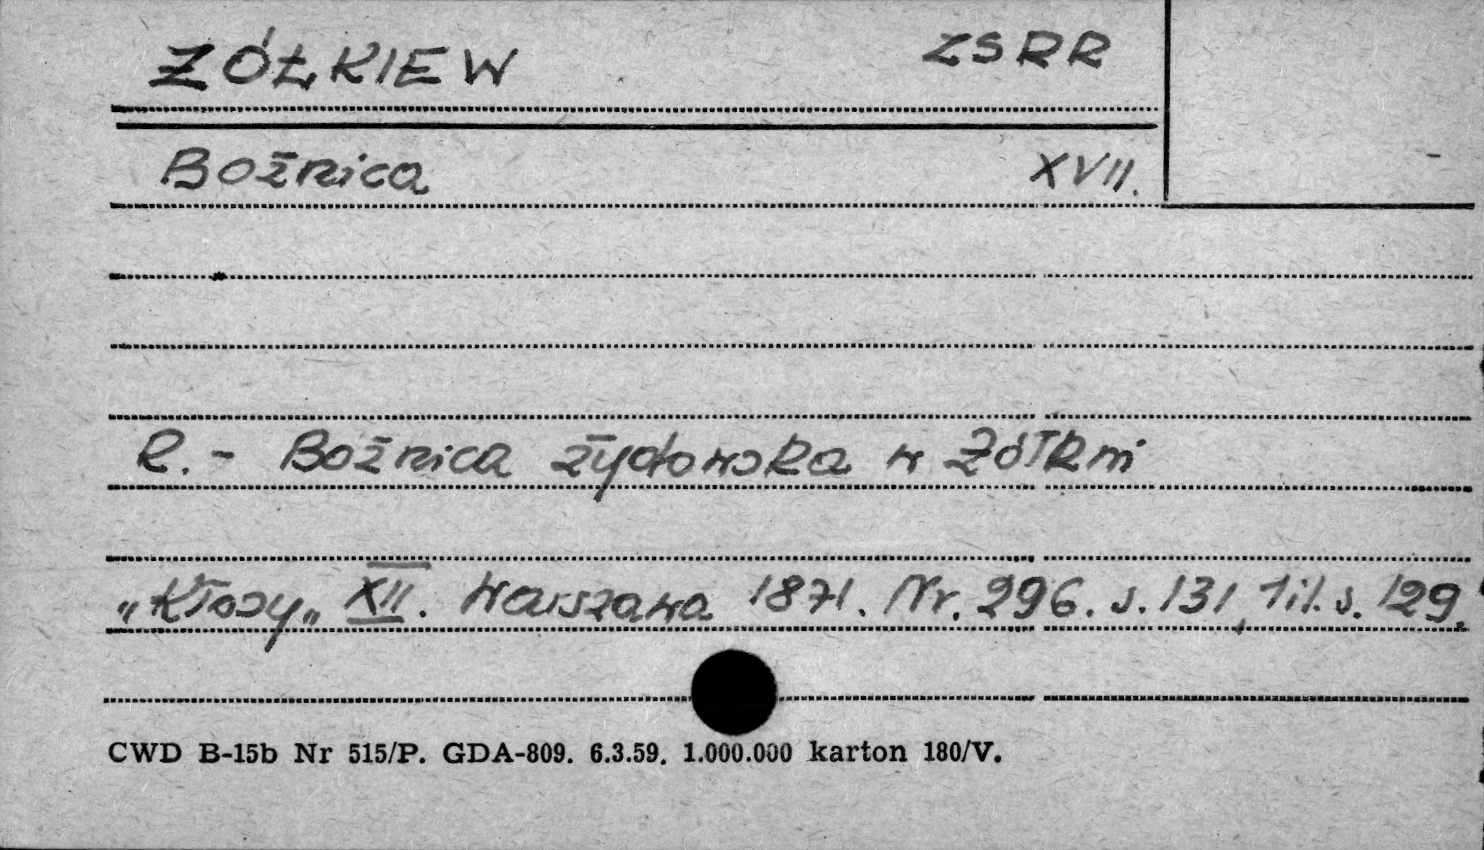 ŻÓŁKIEW ZSRR
Bożnica XVII.
R. - Bożnica żydowska w Żółkwi
„Kłosy„ XII. Warszawa 1871. Nr. 296. s. 131, 1 il. s. 129.
CWD B-15b Nr 515/P. GDA-809. 6.3.59. 1.000.000 karton 180/V.